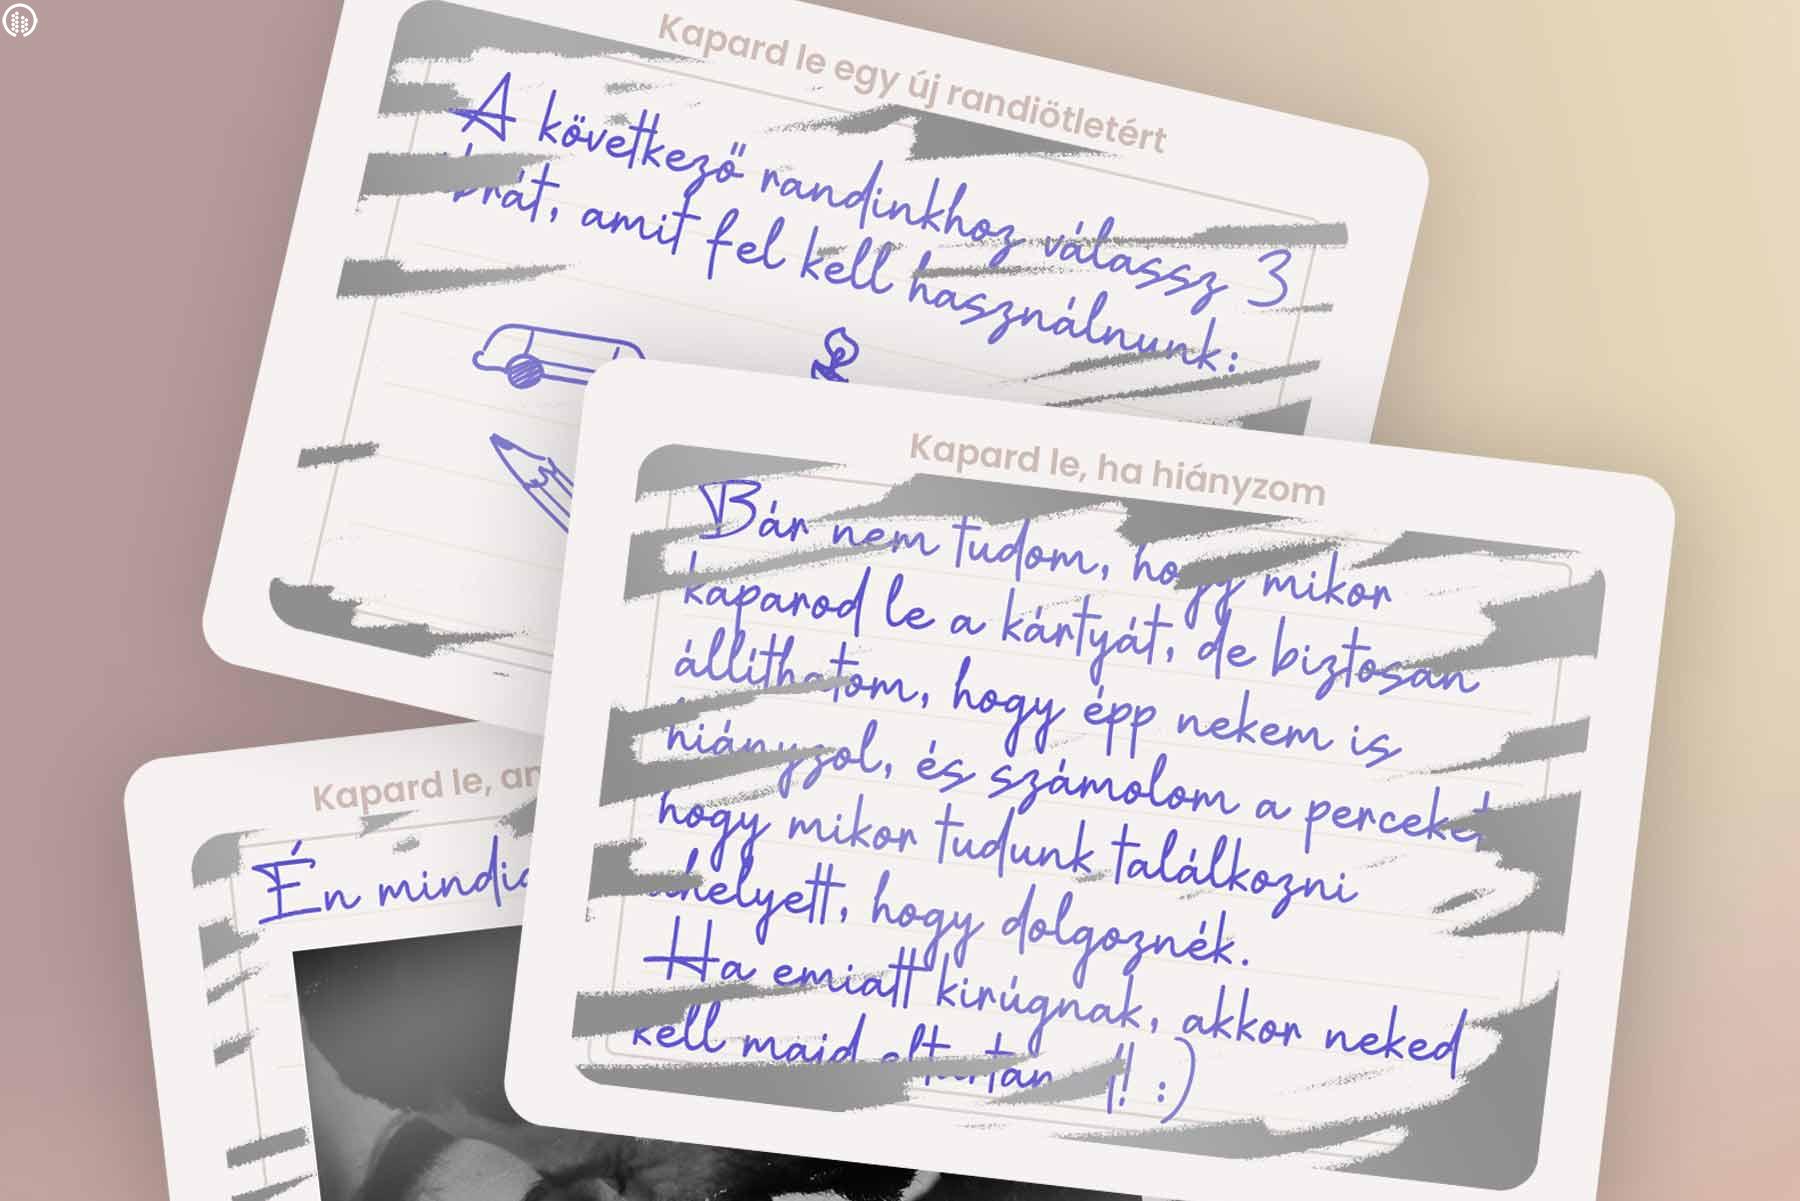 Kapard le egy új randiötletért
A következő randinkhoz válassz 3
ábrát, amit fel kell használnunk:
Kapard le, ha hiányzom
Bár nem tudom, hogy mikor
kaparod le a kártyát, de biztosan
állíthatom, hogy épp nekem is
hiányzol, és számolom a perceket
hogy mikor tudunk találkozni
ahelyett, hogy dolgoznék.
Ha emiatt kirúgnak, akkor neked
kell majd eltartan !! :)
Kapard le,
Én